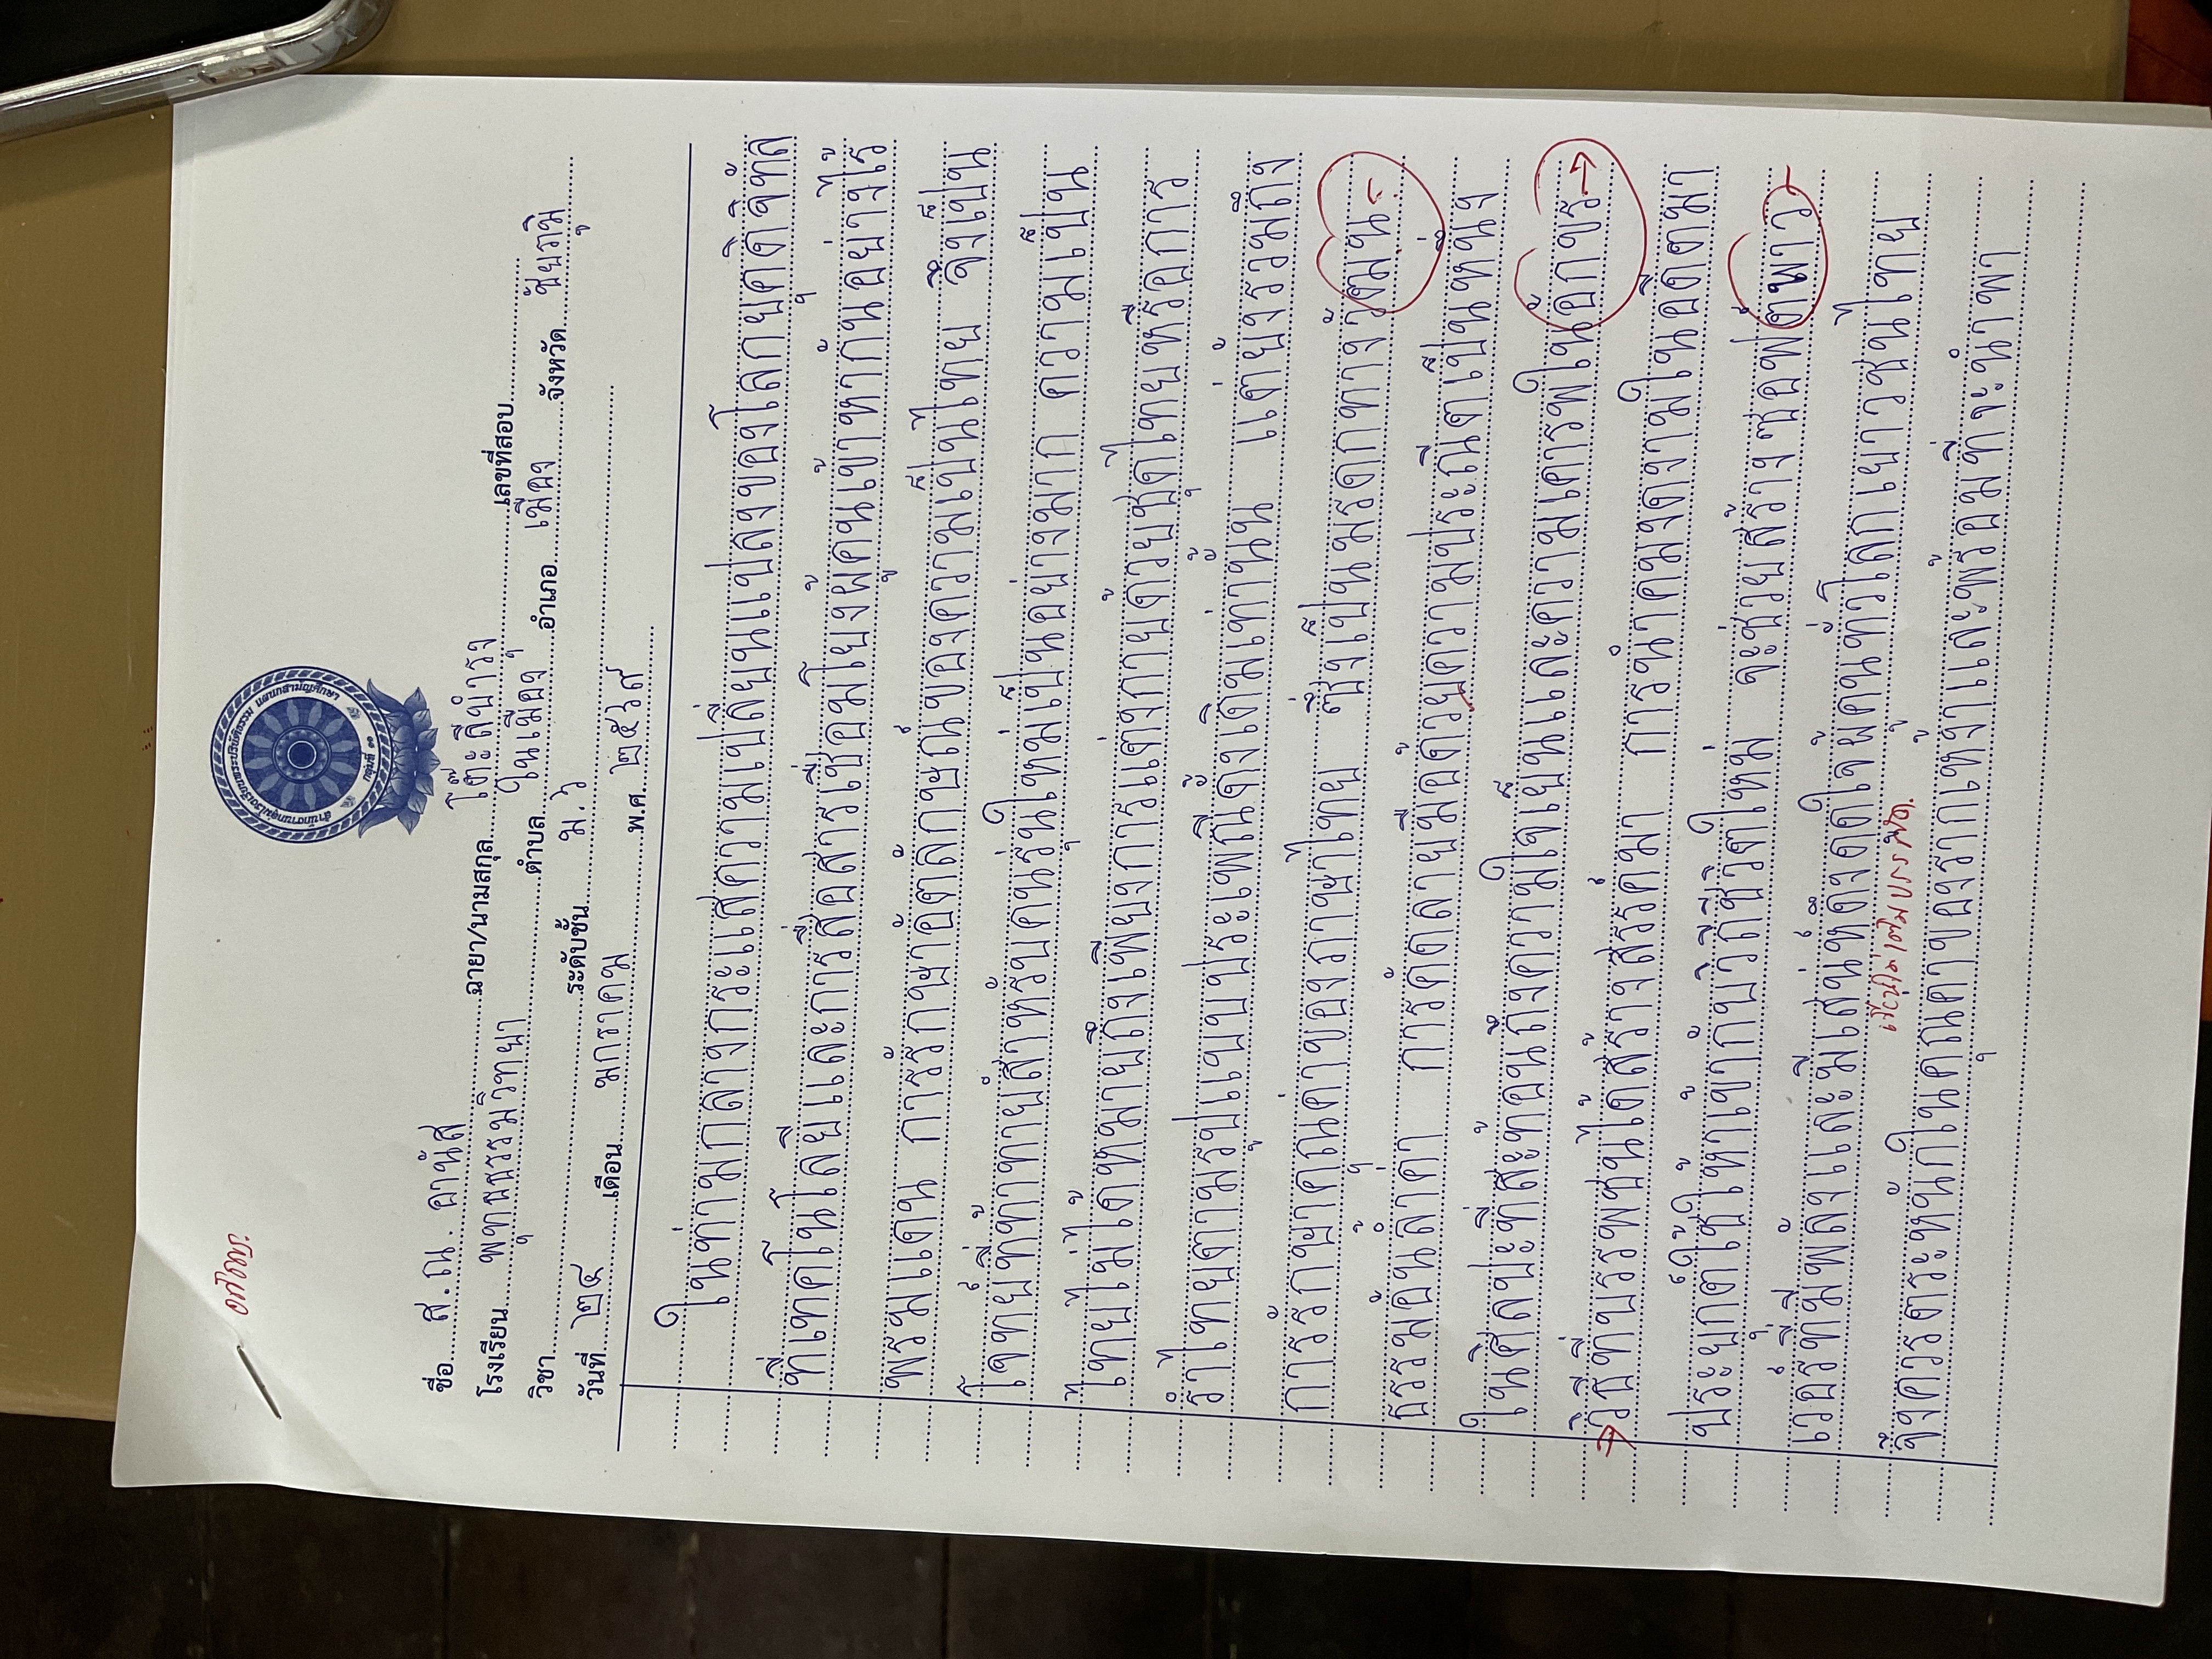 อภิวิชญ์
สำนักงานกลุ่มโรงเรียนพระปริยัติธรรม แผนกสามัญศึกษา
กลุ่มที่ ๑๑
ชื่อ ส.ณ. อานัส ฉายา/นามสกุล โต๊ะสีนำรง เลขที่สอบ
โรงเรียน พุทธธรรมวิทยา ตำบล ในเมือง อำเภอ เมือง จังหวัด ชัยภูมิ
วิชา ระดับชั้น ม.๖
วันที่ ๒๔ เดือน มกราคม พ.ศ. ๒๕๖๙
ในท่ามกลางกระแสความเปลี่ยนแปลงของโลกยุคดิจิทัล
ที่เทคโนโลยีและการสื่อสารเชื่อมโยงผู้คนเข้าหากันอย่างไร้
พรมแดน การรักษาอัตลักษณ์ของความเป็นไทย จึงเป็น
โจทย์ที่ท้าทายสำหรับคนรุ่นใหม่เป็นอย่างมาก ความเป็น
ไทยไม่ได้หมายถึงเพียงการแต่งกายด้วยชุดไทยหรือการ
รำไทยตามรูปแบบประเพณีดั้งเดิมเท่านั้น แต่ยังรวมถึง
การรักษาคุณค่าของภาษาไทย ซึ่งเป็นมรดกทางวัตมน-
ธรรมอันล้ำค่า การคัดลายมือด้วยความประณีตเป็นหนึ่ง
ในศิลปะที่สะท้อนถึงความใจเย็นและความเคารพในอักขร
วิธีที่บรรพชนได้สร้างสรรค์มา การนำความงดงามในอดีตมา
ประยุกต์ใช้ให้เข้ากับวิถีชีวิตใหม่ จะช่วยสร้างซอฟต์พาว-
เวอร์ที่มีพลังและมีเสน่ห์ดึงดูดใจผู้คนทั่วโลก เยาวชนไทย
เขียนไม่เต็มบรรทัด.
จึงควรตระหนักในคุณค่าของรากเหง้าและพร้อมที่จะนำพา